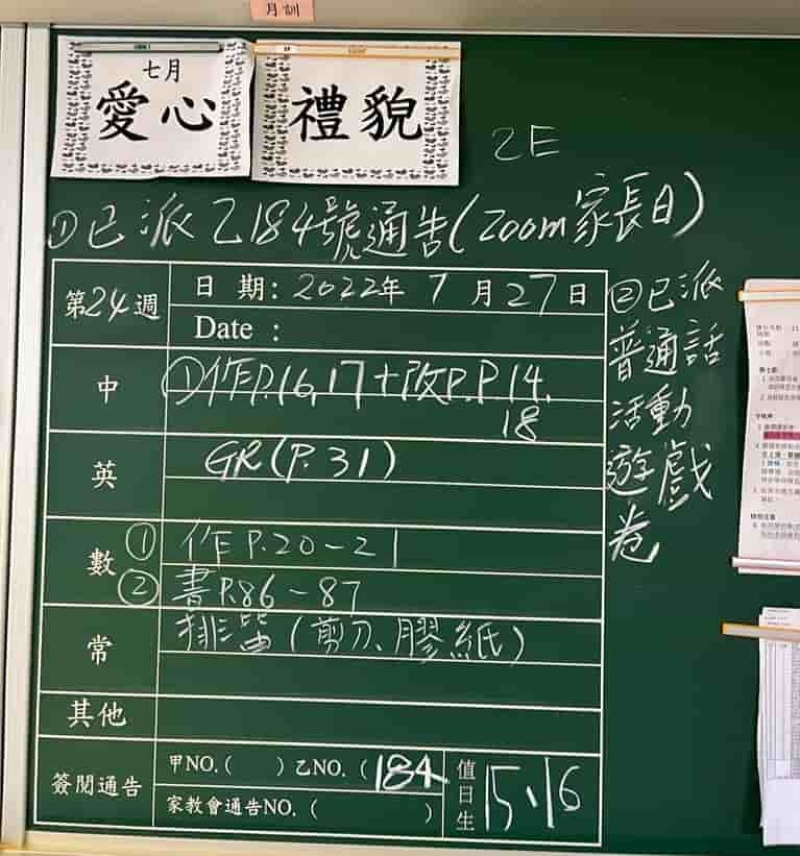 月訓
七月
愛心
禮貌
2E
①已派乙184號通告(Zoom家長日)
②已派
普通話
活動
遊戲
卷
第24週
日 期：2022年 7 月27日
Date ：
中
①作P.16,17+改P.P14,
18
英
GR(P.31)
數
① 作P.20-21
② 書P.86-87
常
(剪刀、膠紙)
其他
簽閱通告
甲NO.( ) 乙NO. (184
家教會通告NO. ( )
值日生
15、16